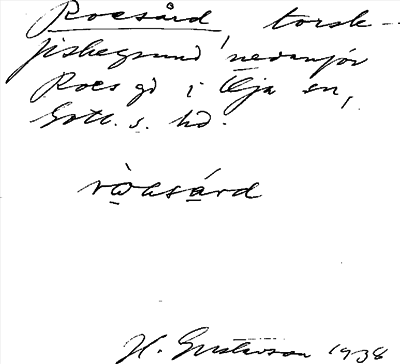 Rocsård, torsk-
fiskegrund nedanför
Rocs gd i Öja sn,
Gotl. s. hd.
ròcsárd
H. Gustavson 1938